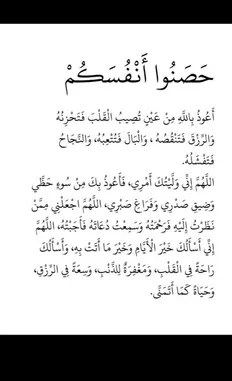 حَصِّنُوا أَنْفُسَكُمْ
أَعُوذُ بِاللَّهِ مِنْ عَيْنٍ تُصِيبُ الْقَلْبَ فَتَحْزِنُهُ
وَالرِّزْقَ فَتَنْقُصُهُ ، وَالْبَالَ فَتُتْعِبُهُ، وَالنَّجَاحَ
فَتُفْشِلُهُ.
اللَّهُمَّ إِنِّي وَلَّيْتُكَ أَمْرِي، فَأَعُوذُ بِكَ مِنْ سُوءِ حَظِّي
وَضِيقِ صَدْرِي وَفَرَاغِ صَبْرِي، اللَّهُمَّ اجْعَلْنِي مِمَّنْ
نَظَرْتَ إِلَيْهِ فَرَحِمْتَهُ وَسَمِعْتَ دُعَائَهُ فَأَجَبْتَهُ، اللَّهُمَّ
إِنِّي أَسْأَلُكَ خَيْرَ الْأَيَّامِ وَخَيْرَ مَا أَتَتْ بِهِ، وَأَسْأَلُكَ
رَاحَةً فِي الْقَلْبِ، وَمَغْفِرَةً لِلذَّنْبِ، وَسِعَةً فِي الرِّزْقِ،
وَحَيَاةً كَمَا أَتَمَنَّى.